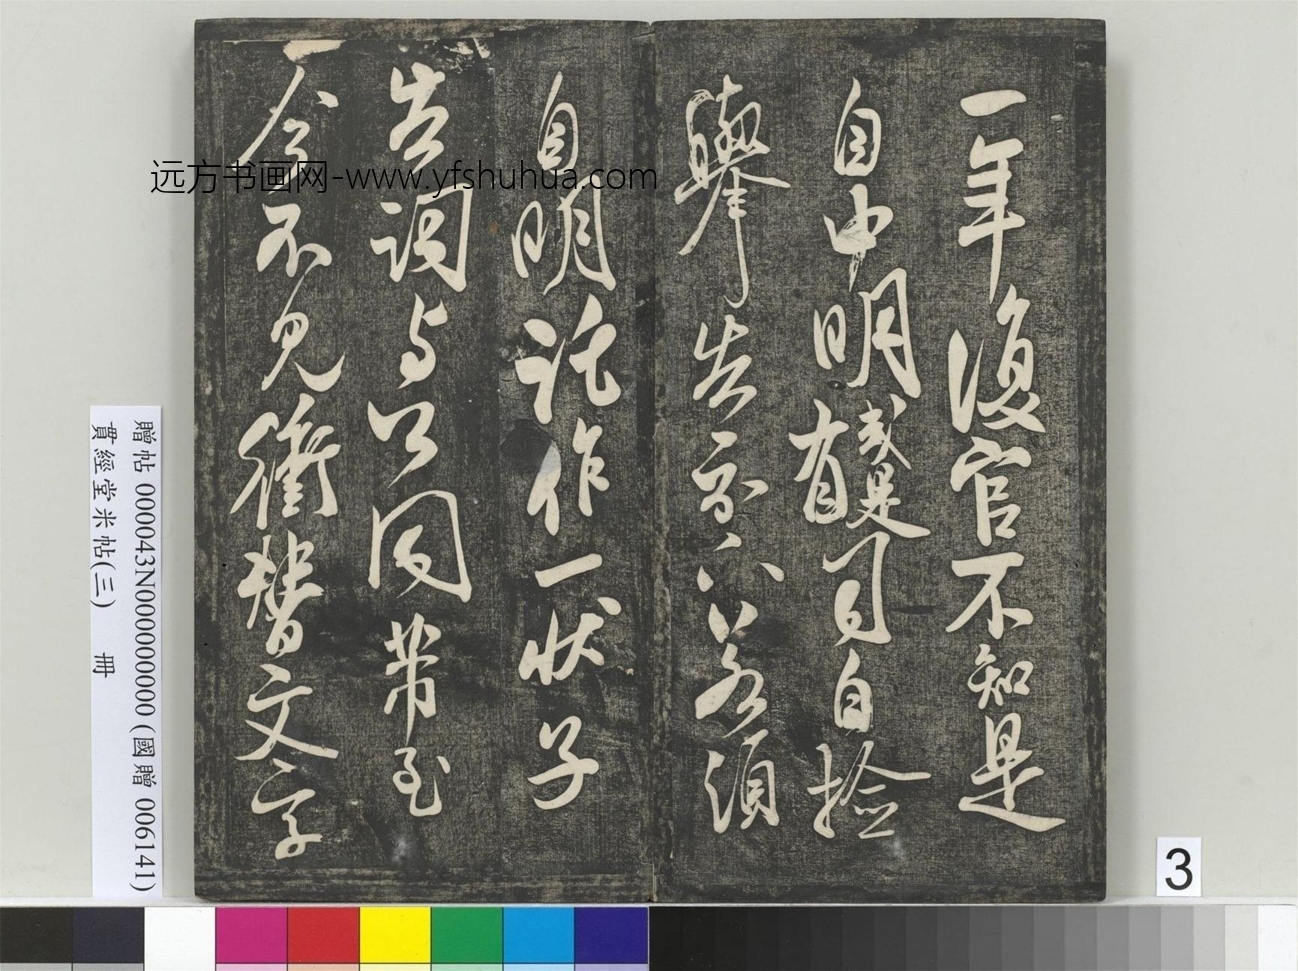 一年復官不知是
自申明或是有司自撿
舉告示下以為須
自明託作一狀子
告詞与公同帶至
今不見衝替文字
远方书画网-www.yfshuhua.com
贈帖 000043N000000000 (國贈 006141)
貫經堂米帖(三) 冊
3